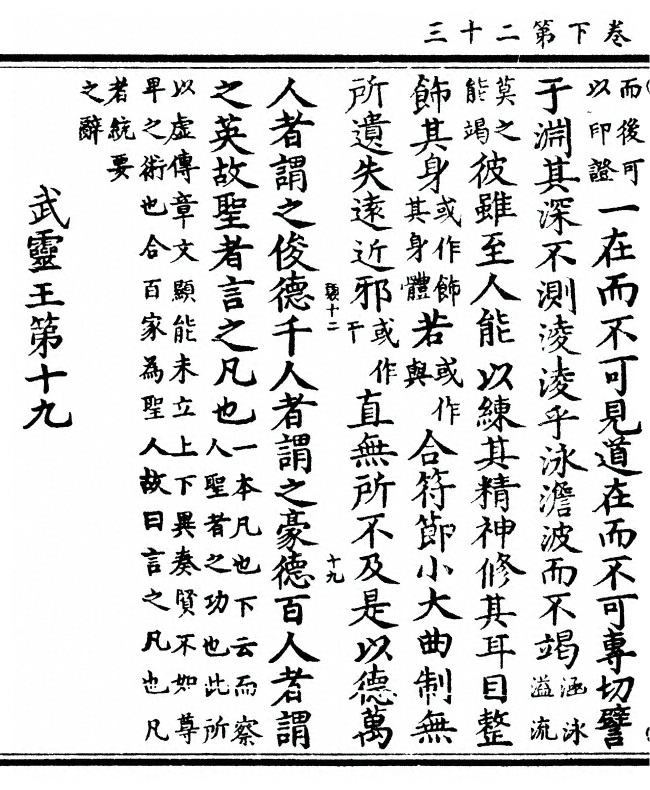 卷下第二十三
而後可以印證一在而不可見道在而不可專切譬
于淵其深不測淩淩乎泳澹波而不竭涵泳溢流
莫之能竭彼雖至人能以練其精神修其耳目整
飾其身或作飾其身體若或作與合符節小大曲制無
所遺失遠近邪或作干直無所不及是以德萬
十二
十九
人者謂之俊德千人者謂之豪德百人者謂
之英故聖者言之凡也一本凡也下云而察人聖者之功也此所
以虛傳章文顯能未立上下異奏賢不如尊
卑之術也合百家為聖人故曰言之凡也凡
者統要
之辭
武靈王第十九